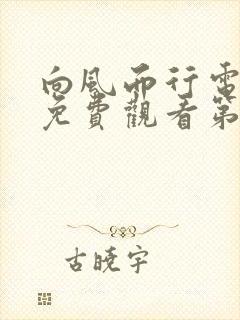 向風而行電
免費觀看第
古曉宇